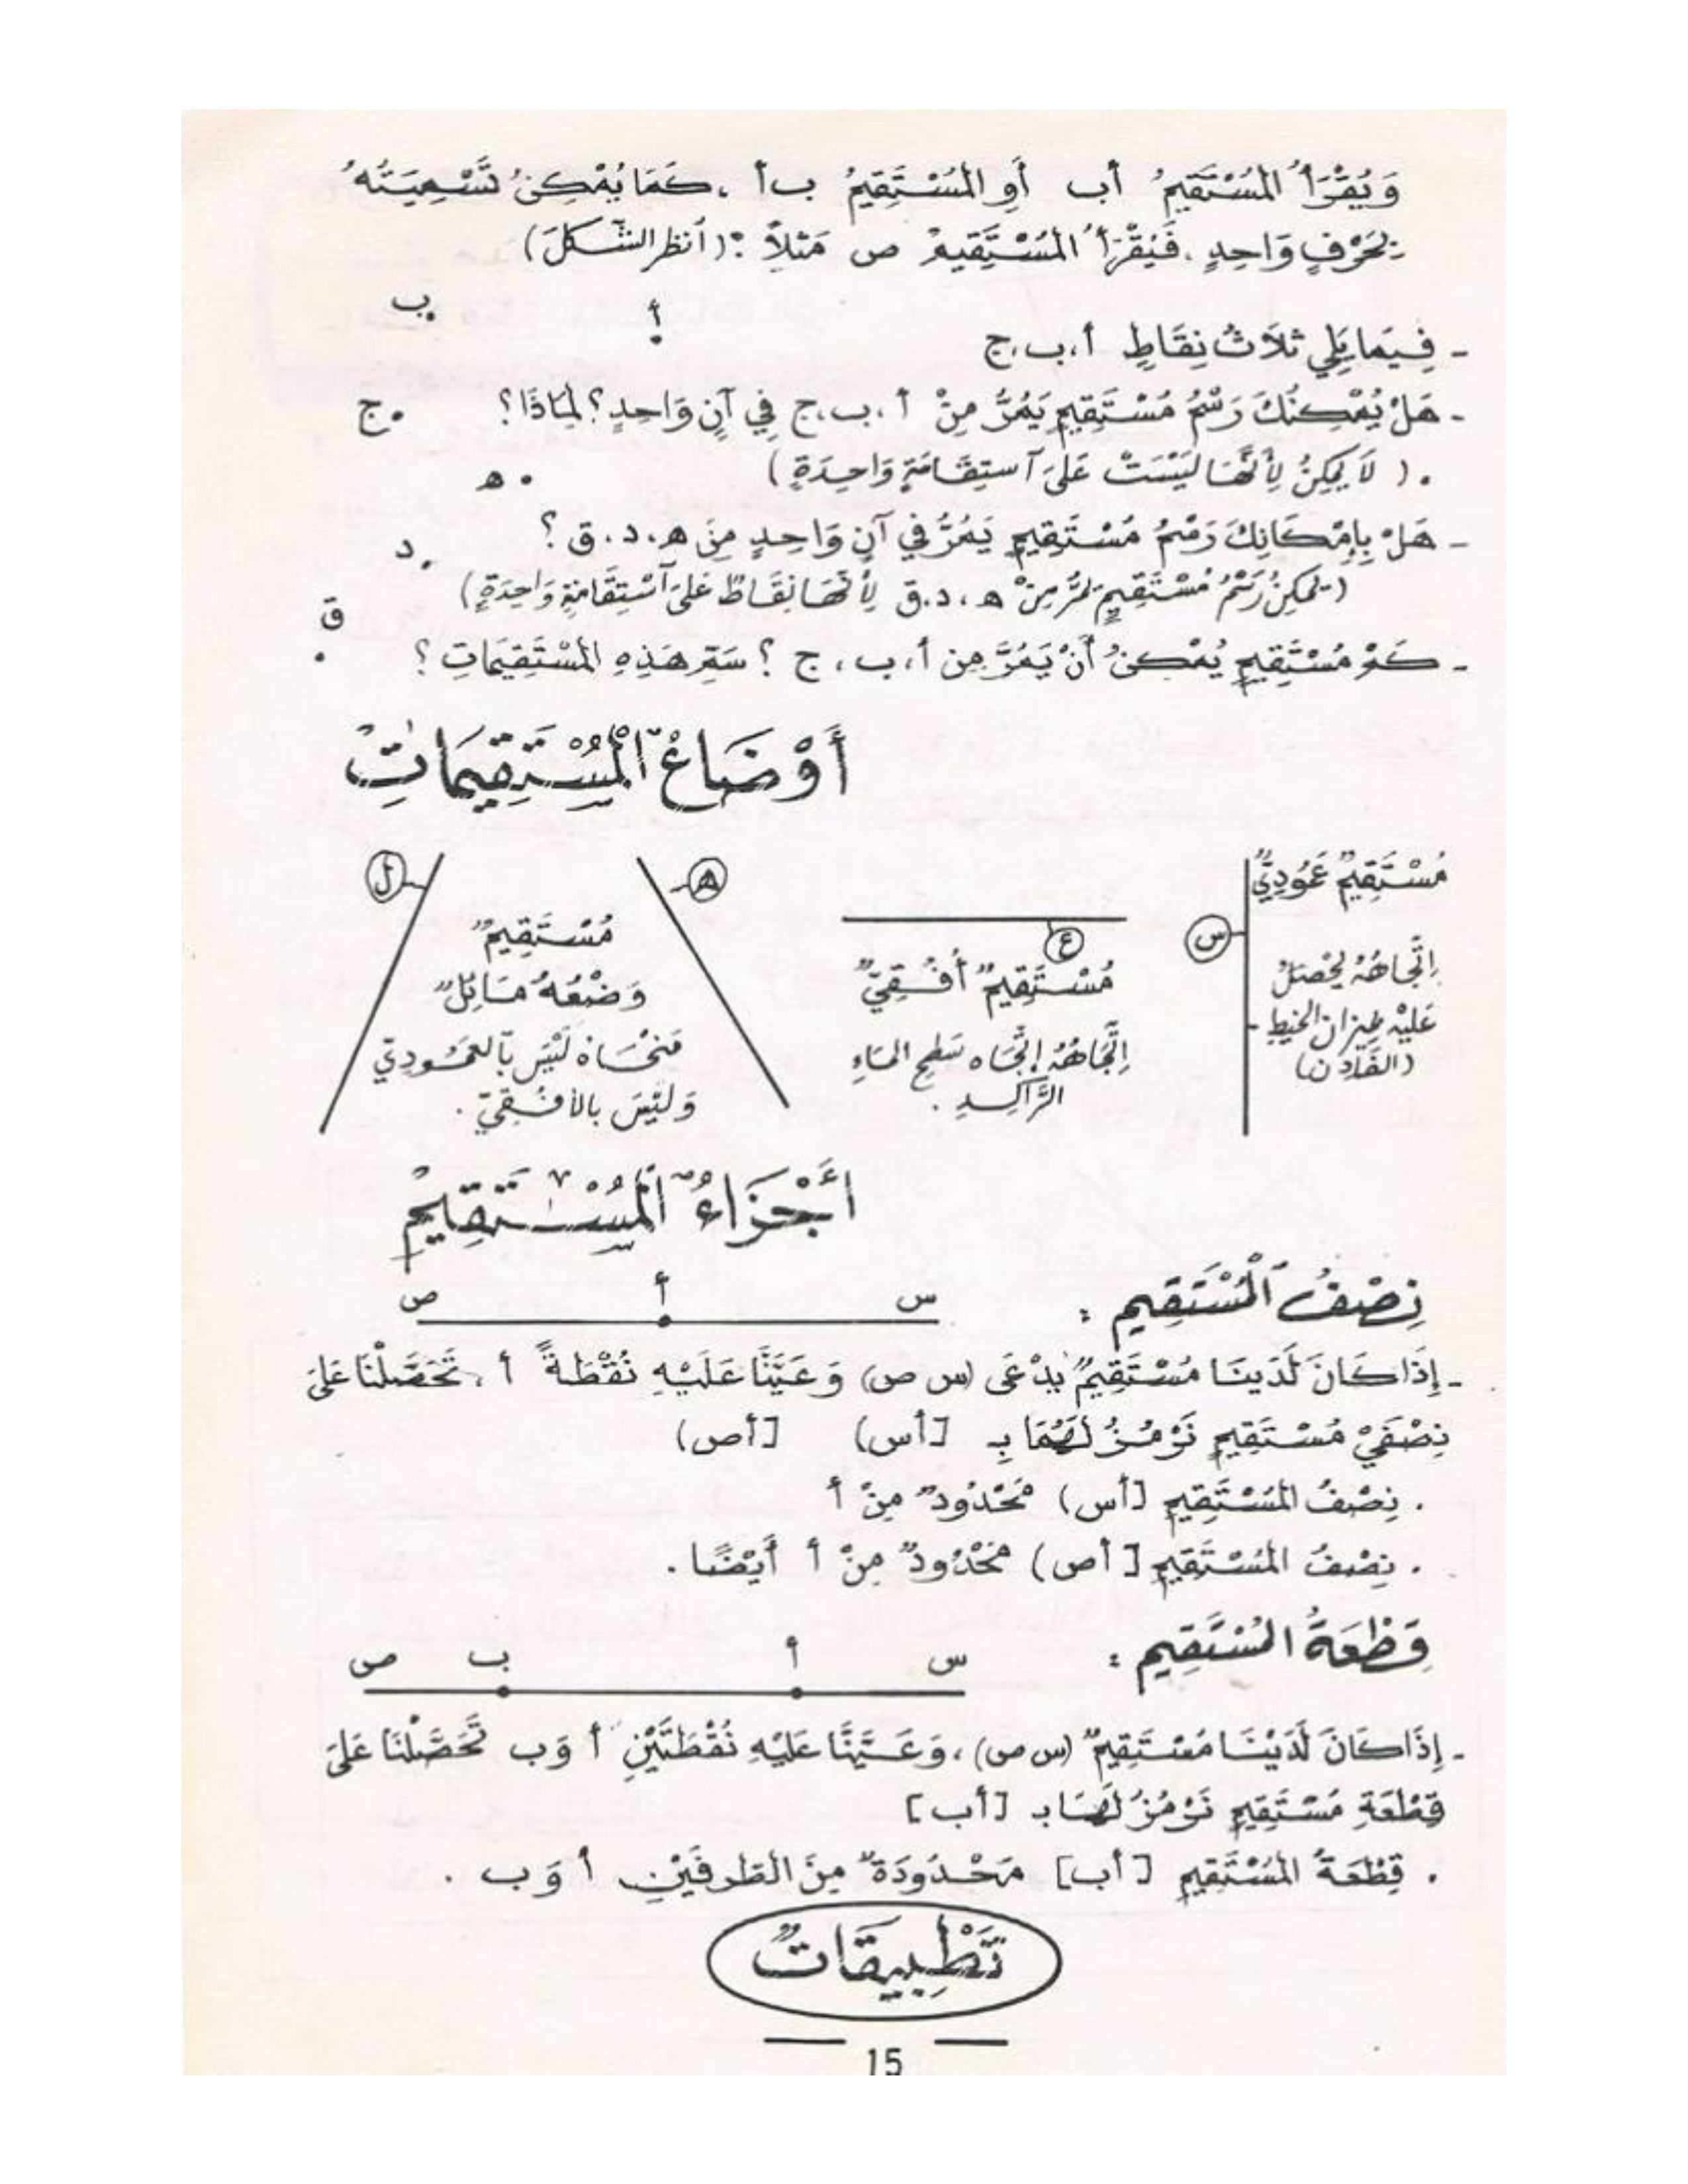 وَيُقْرَأُ المُسْتَقِيمُ أب أَوِ المُسْتَقِيمُ ب أ ، كَمَا يُمْكِنُ تَسْمِيَتُهُ
بِحَرْفٍ وَاحِدٍ . فَيُقْرَأُ المُسْتَقِيمُ ص مَثَلاً : (أنظر الشَّكلَ)
ب
أ
- فِيمَا يَلِي ثَلاَثُ نِقَاطٍ أ ، ب ، ج
- هَلْ يُمْكِنُكَ رَسْمُ مُسْتَقِيمٍ يَمُرُّ مِنْ أ ، ب ، ج فِي آنٍ وَاحِدٍ ؟ لِمَاذَا ؟
ج
. ( لاَ يُمكِنُ لِأَنَّهَا لَيْسَتْ عَلَى آستِقَامَةٍ وَاحِدَةٍ )
ه
- هَلْ بِإِمْكَانِكَ رَسْمُ مُسْتَقِيمٍ يَمُرُّ فِي آنٍ وَاحِدٍ مِنَ ه ، د . ق ؟
د
(يُمكِنُ رَسْمُ مُسْتَقِيمٍ يَمُرُّ مِنْ ه ، د . ق لِأَنَّهَا نِقَاطٌ عَلَى آسْتِقَامَةٍ وَاحِدَةٍ)
ق
- كَمْ مُسْتَقِيمٍ يُمْكِنُ أَنْ يَمُرَّ مِن أ ، ب ، ج ؟ سَمِّ هَذِهِ المُسْتَقِيمَاتِ ؟
أَوْضَاعُ الْمُسْتَقِيمَاتِ
مُسْتَقِيمٌ عَمُودِيٌّ
س
إِتِّجَاهُهُ يَحْصَلُ
عَلَيْهِ بِمِيزَانِ الخَيْطِ
(الفَادِن)
ع
مُسْتَقِيمٌ أُفُقِيٌّ
إِتِّجَاهُهُ إِتِّجَاه سَطحِ المَاءِ
الرَّاكِدِ .
ه
ل
مُسْتَقِيمٌ
وَضْعُهُ مَائِلٌ
مَنْحَاهُ لَيْسَ بِآلعَمُودِيّ
وَلَيْسَ بالأفُقِيّ .
أَجْزَاءُ الْمُسْتَقِيمِ
نِصْفُ الْمُسْتَقِيمِ :
س أ ص
- إِذَا كَانَ لَدَيْنَا مُسْتَقِيمٌ يُدْعَى (س ص) وَعَيَّنَّا عَلَيْهِ نُقْطَةً أ ، تَحَصَّلْنَا عَلَى
نِصْفَيْ مُسْتَقِيمٍ نَرْمُزُ لَهُمَا بِـ [أس) [أص)
. نِصْفُ المُسْتَقِيمِ [أس) مَحْدُودٌ مِنْ أ
. نِصْفُ المُسْتَقِيمِ [أص) مَحْدُودٌ مِنْ أ أَيْضًا .
قِطْعَةُ المُسْتَقِيمِ :
س أ ب ص
- إِذَا كَانَ لَدَيْنَا مُسْتَقِيمٌ (س ص) ، وَعَيَّنَّا عَلَيْهِ نُقْطَتَيْنِ أ وَ ب تَحَصَّلْنَا عَلَى
قِطْعَةِ مُسْتَقِيمٍ نَرْمُزُ لَهَا بـ [أب]
. قِطْعَةُ المُسْتَقِيمِ [أب] مَحْدُودَةٌ مِنَ الطَّرفَيْنِ أ وَ ب .
تَطْبِيقَاتٌ
15